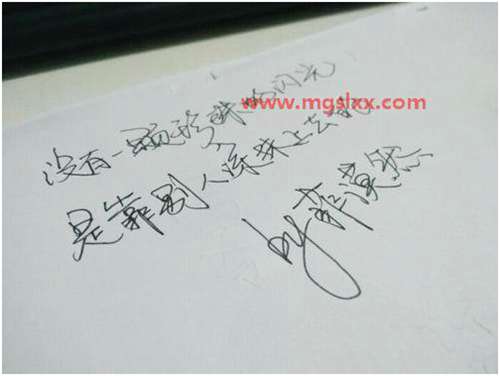 没有一颗珍珠的闪光
www.mgslxx.com
是靠别人涂抹上去的
by